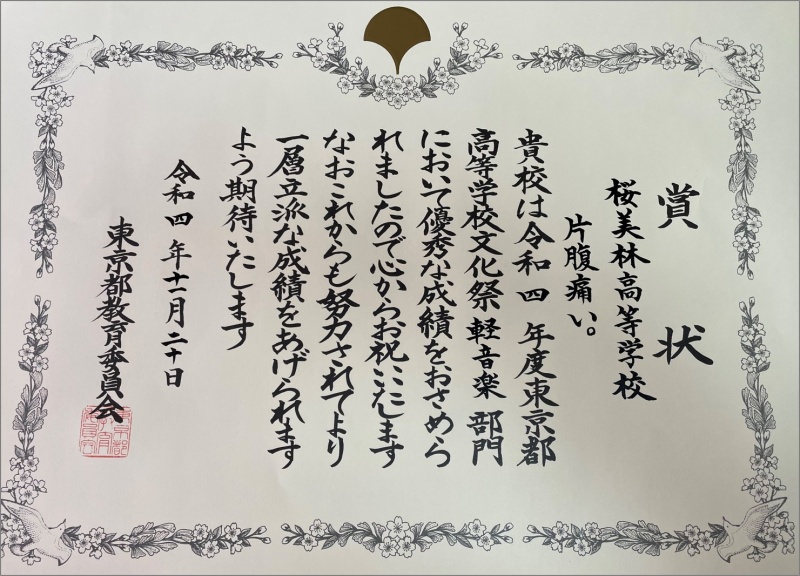 賞状
桜美林高等学校
片腹痛い。
貴校は令和四年度東京都
高等学校文化祭軽音楽部門
において優秀な成績をおさめら
れましたので心からお祝いいたします
なおこれからも努力されてより
一層立派な成績をあげられます
よう期待いたします
令和四年十一月二十日
東京都教育委員会